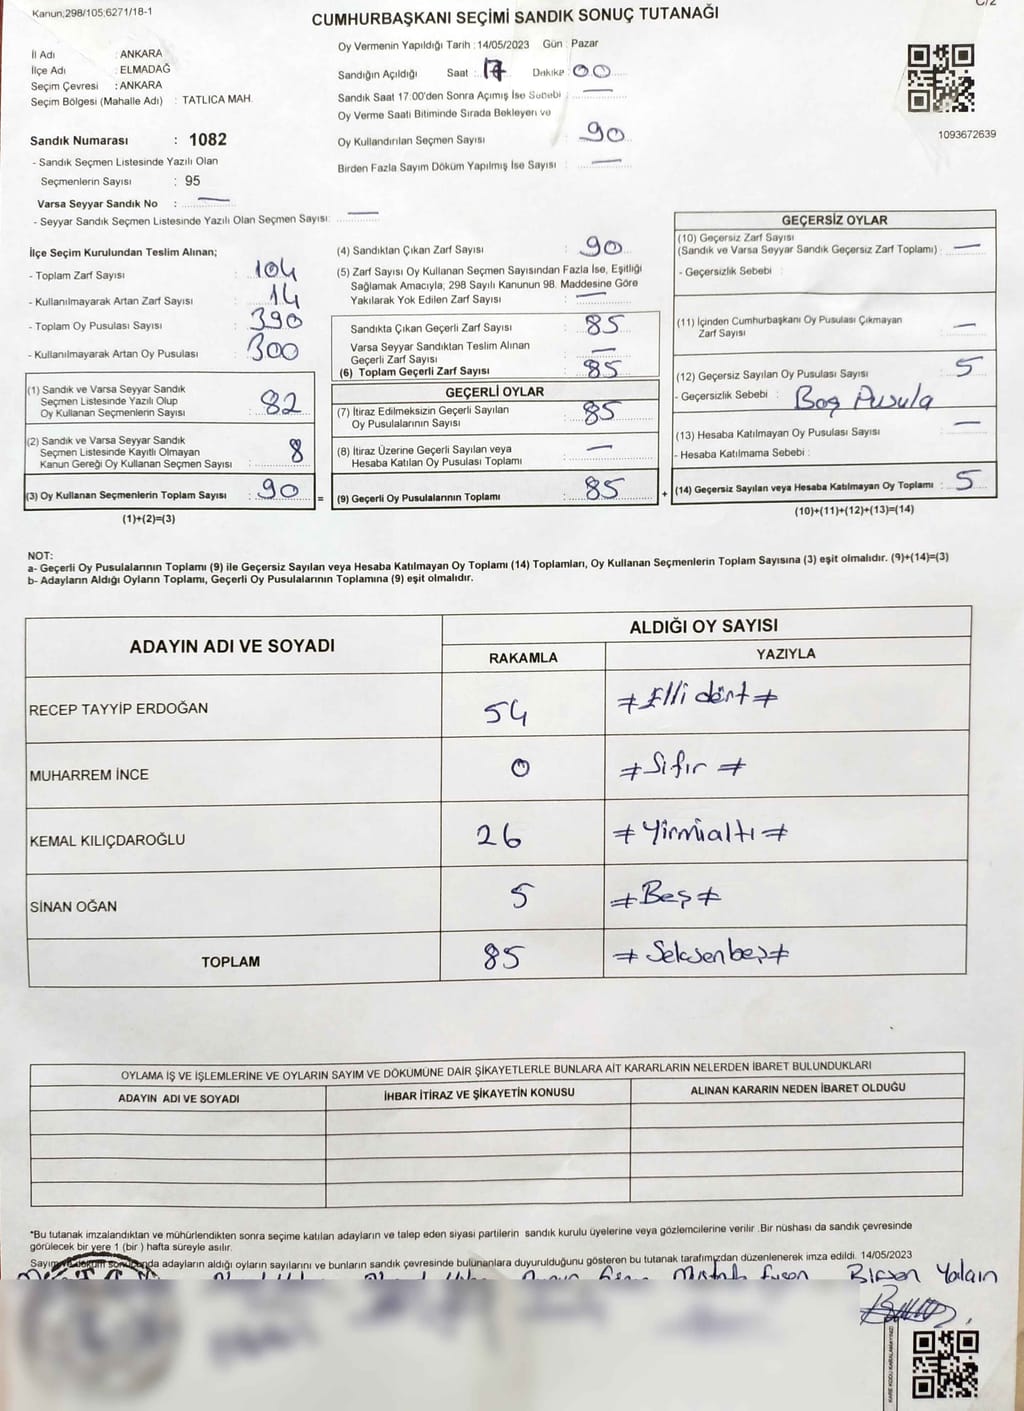 Kanun;298/105;6271/18-1
C/2
CUMHURBAŞKANI SEÇİMİ SANDIK SONUÇ TUTANAĞI
İl Adı : ANKARA
İlçe Adı : ELMADAĞ
Seçim Çevresi : ANKARA
Seçim Bölgesi (Mahalle Adı) : TATLICA MAH.
Sandık Numarası : 1082
- Sandık Seçmen Listesinde Yazılı Olan
Seçmenlerin Sayısı : 95
Varsa Seyyar Sandık No : —
- Seyyar Sandık Seçmen Listesinde Yazılı Olan Seçmen Sayısı: —
Oy Vermenin Yapıldığı Tarih : 14/05/2023 Gün : Pazar
Sandığın Açıldığı Saat : 17 Dakika : 00
Sandık Saat 17:00'den Sonra Açımış İse Sebebi : —
Oy Verme Saati Bitiminde Sırada Bekleyen ve
Oy Kullandırılan Seçmen Sayısı : 90
Birden Fazla Sayım Döküm Yapılmış İse Sayısı : —
1093672639
İlçe Seçim Kurulundan Teslim Alınan;
- Toplam Zarf Sayısı : 104
- Kullanılmayarak Artan Zarf Sayısı : 14
- Toplam Oy Pusulası Sayısı : 390
- Kullanılmayarak Artan Oy Pusulası : 300
(1) Sandık ve Varsa Seyyar Sandık
Seçmen Listesinde Yazılı Olup
Oy Kullanan Seçmenlerin Sayısı : 82
(2) Sandık ve Varsa Seyyar Sandık
Seçmen Listesinde Kayıtlı Olmayan
Kanun Gereği Oy Kullanan Seçmen Sayısı : 8
(3) Oy Kullanan Seçmenlerin Toplam Sayısı : 90 =
(1)+(2)=(3)
(4) Sandıktan Çıkan Zarf Sayısı : 90
(5) Zarf Sayısı Oy Kullanan Seçmen Sayısından Fazla İse, Eşitliği
Sağlamak Amacıyla; 298 Sayılı Kanunun 98. Maddesine Göre
Yakılarak Yok Edilen Zarf Sayısı : —
Sandıkta Çıkan Geçerli Zarf Sayısı : 85
Varsa Seyyar Sandıktan Teslim Alınan
Geçerli Zarf Sayısı : —
(6) Toplam Geçerli Zarf Sayısı : 85
GEÇERLİ OYLAR
(7) İtiraz Edilmeksizin Geçerli Sayılan
Oy Pusulalarının Sayısı : 85
(8) İtiraz Üzerine Geçerli Sayılan veya
Hesaba Katılan Oy Pusulası Toplamı : —
(9) Geçerli Oy Pusulalarının Toplamı : 85 +
GEÇERSİZ OYLAR
(10) Geçersiz Zarf Sayısı
(Sandık ve Varsa Seyyar Sandık Geçersiz Zarf Toplamı) : —
- Geçersizlik Sebebi :
(11) İçinden Cumhurbaşkanı Oy Pusulası Çıkmayan
Zarf Sayısı : —
(12) Geçersiz Sayılan Oy Pusulası Sayısı : 5
- Geçersizlik Sebebi : Boş Pusula
(13) Hesaba Katılmayan Oy Pusulası Sayısı : —
- Hesaba Katılmama Sebebi :
(14) Geçersiz Sayılan veya Hesaba Katılmayan Oy Toplamı : 5
(10)+(11)+(12)+(13)=(14)
NOT:
a- Geçerli Oy Pusulalarının Toplamı (9) ile Geçersiz Sayılan veya Hesaba Katılmayan Oy Toplamı (14) Toplamları, Oy Kullanan Seçmenlerin Toplam Sayısına (3) eşit olmalıdır. (9)+(14)=(3)
b- Adayların Aldığı Oyların Toplamı, Geçerli Oy Pusulalarının Toplamına (9) eşit olmalıdır.
ADAYIN ADI VE SOYADI ALDIĞI OY SAYISI
RAKAMLA YAZIYLA
RECEP TAYYİP ERDOĞAN 54 ≠Elli dört≠
MUHARREM İNCE 0 ≠Sıfır≠
KEMAL KILIÇDAROĞLU 26 ≠Yirmialtı≠
SİNAN OĞAN 5 ≠Beş≠
TOPLAM 85 ≠Seksenbeş≠
OYLAMA İŞ VE İŞLEMLERİNE VE OYLARIN SAYIM VE DÖKÜMÜNE DAİR ŞİKAYETLERLE BUNLARA AİT KARARLARIN NELERDEN İBARET BULUNDUKLARI
ADAYIN ADI VE SOYADI İHBAR İTİRAZ VE ŞİKAYETİN KONUSU ALINAN KARARIN NEDEN İBARET OLDUĞU
*Bu tutanak imzalandıktan ve mühürlendikten sonra seçime katılan adayların ve talep eden siyasi partilerin sandık kurulu üyelerine veya gözlemcilerine verilir .Bir nüshası da sandık çevresinde
görülecek bir yere 1 (bir ) hafta süreyle asılır.
Sayım ve döküm sonunda adayların aldığı oyların sayılarını ve bunların sandık çevresinde bulunanlara duyurulduğunu gösteren bu tutanak tarafımızdan düzenlenerek imza edildi. 14/05/2023
Birsen Yalçın
KARE KODU KARALAMAYINIZ!